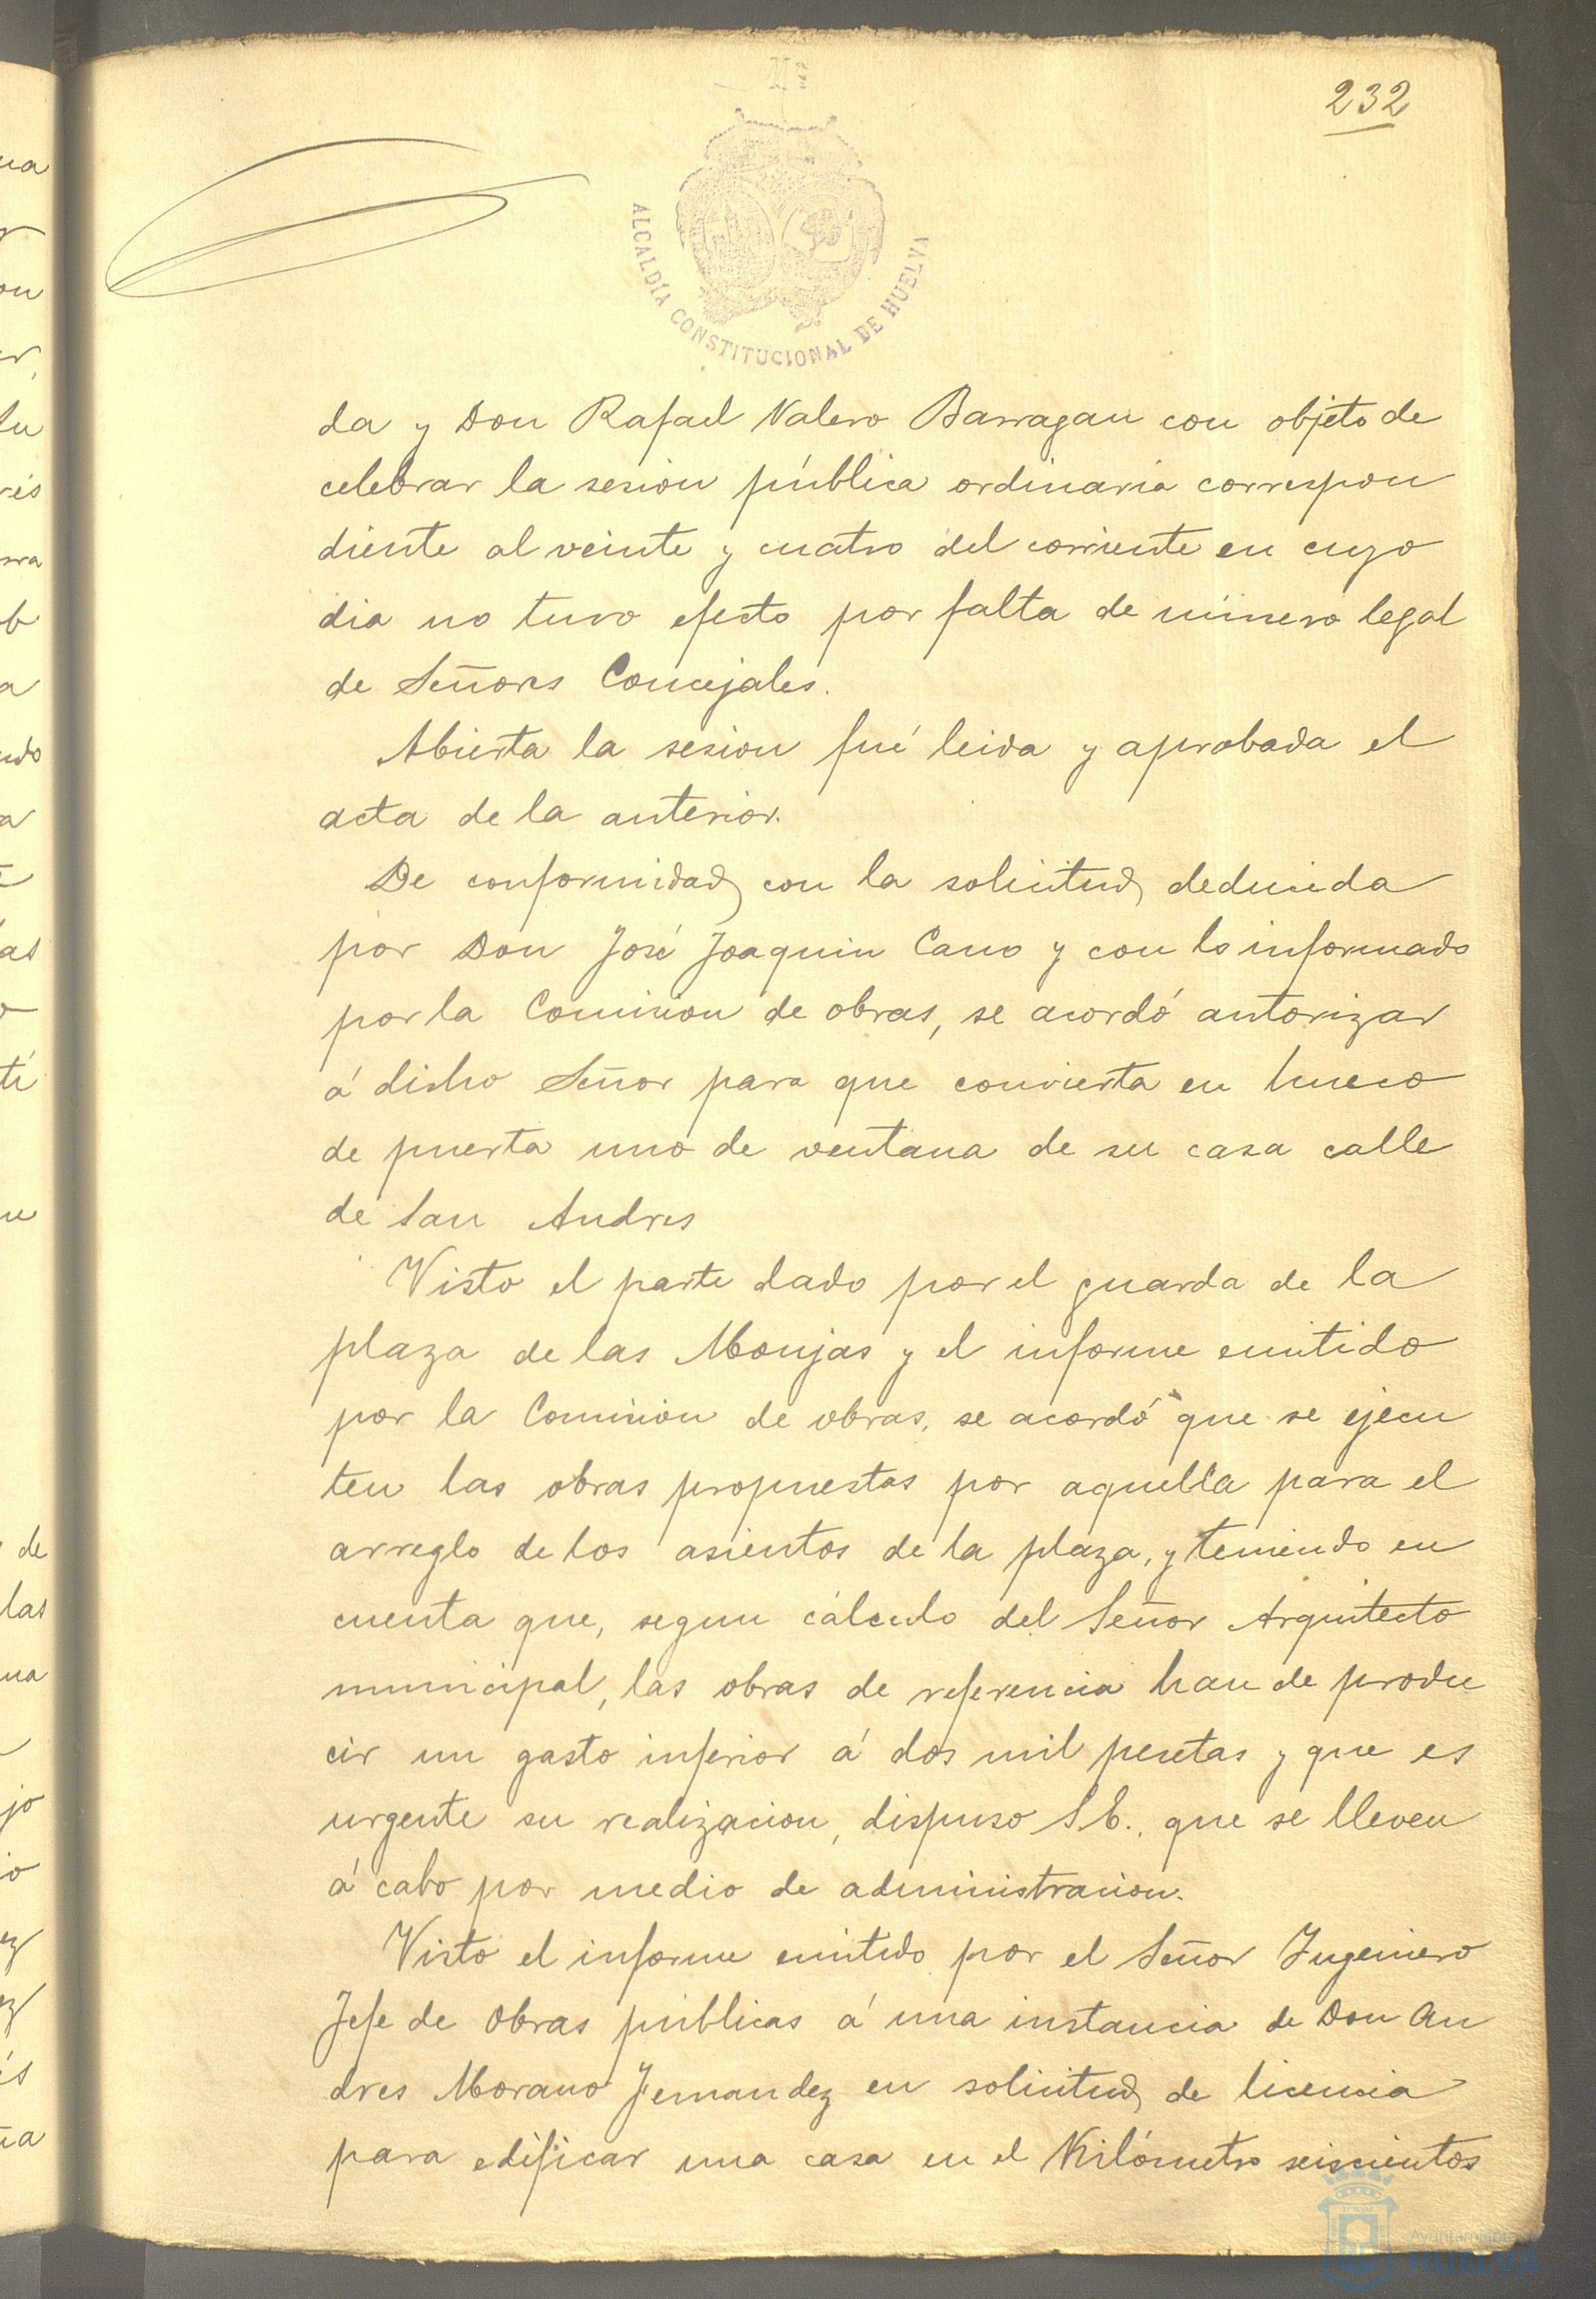 232
ALCALDÍA CONSTITUCIONAL DE HUELVA
da y Don Rafael Valero Barragan con objeto de
celebrar la sesion pública ordinaria correspon
diente al veinte y cuatro del corriente en cuyo
dia no tuvo efecto por falta de número legal
de Señores Concejales.
Abierta la sesion fué leida y aprobada el
acta de la anterior.
De conformidad con la solicitud deducida
por Don José Joaquin Cano y con lo informado
por la Comision de obras, se acordó autorizar
á dicho Señor para que convierta en hueco
de puerta uno de ventana de su casa calle
de San Andres
Visto el parte dado por el guarda de la
plaza de las Monjas y el informe emitido
por la Comision de obras, se acordó que se ejecu
ten las obras propuestas por aquella para el
arreglo de los asientos de la plaza, y teniendo en
cuenta que, segun cálculo del Señor Arquitecto
municipal, las obras de referencia han de produ
cir un gasto inferior á dos mil pesetas y que es
urgente su realizacion, dispuso S.E., que se lleven
á cabo por medio de administracion.
Visto el informe emitido por el Señor Ingeniero
Jefe de Obras públicas á una instancia de Don An
dres Morano Fernandez en solicitud de licencia
para edificar una casa en el Kilómetro seiscientos
Ayuntamiento
HUELVA